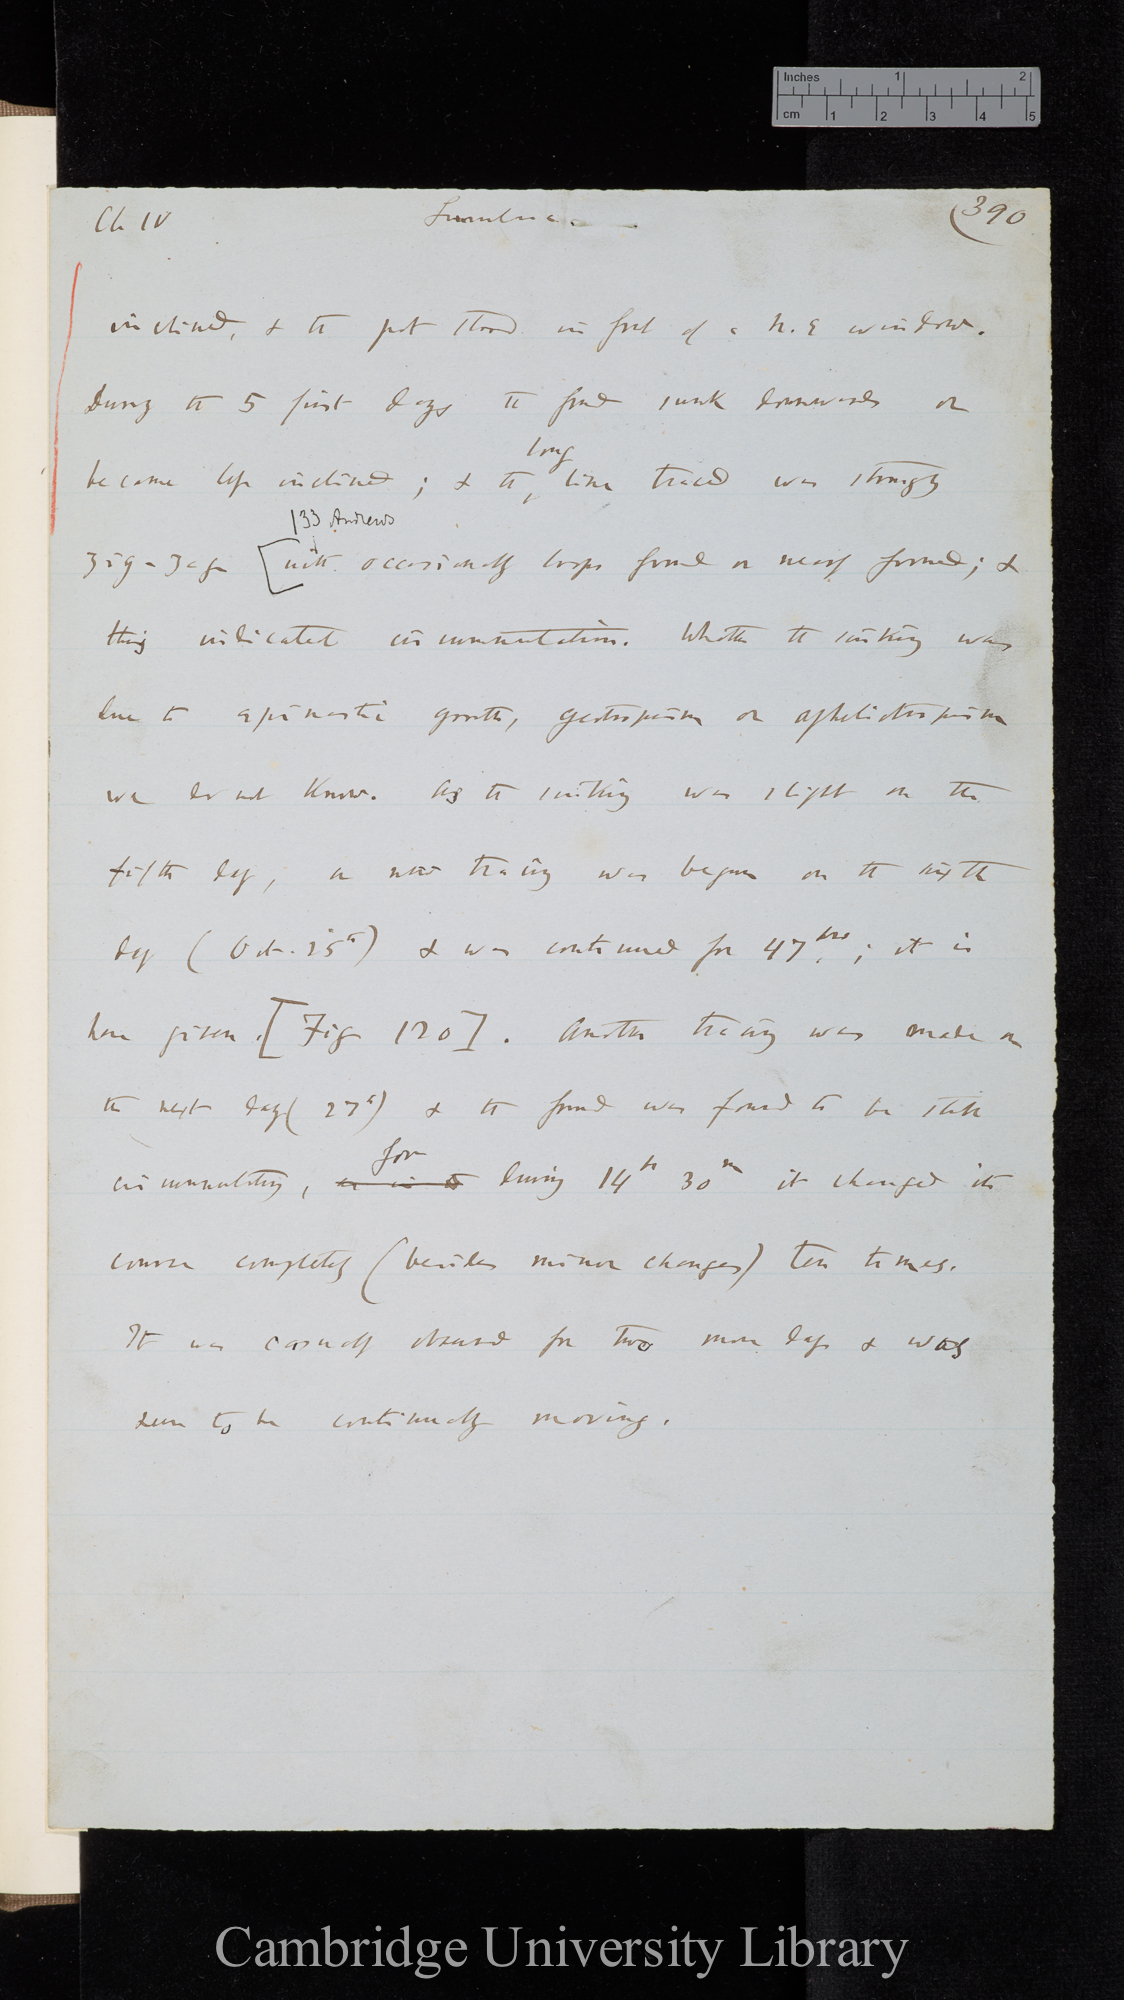 Inches 1 2
cm 1 2 3 4 5
Ch IV Lunularia. (390
inclined, & the pot stood in front of a N.E window.
During the 5 first days the frond sunk downwards or
long
became less inclined; & the line traced was strongly
133 Andrews
zig-zag [with occasionally loops formed or nearly formed; &
this indicated circumnutation. Whether the sinking was
due to epinastic growth, geotropism or apheliotropism
we do not know. As the sinking was slight on the
fifth day, a new tracing was begun on the sixth
day (Oct. 25th) & was continued for 47 hrs; it is
here given. [Fig 120]. Another tracing was made on
the next day (27th) & the frond was found to be still
for
circumnutating, during 14h 30m it changed its
course completely (besides minor changes) ten times.
It was casually observed for two more days & was
seen to be continually moving.
Cambridge University Library